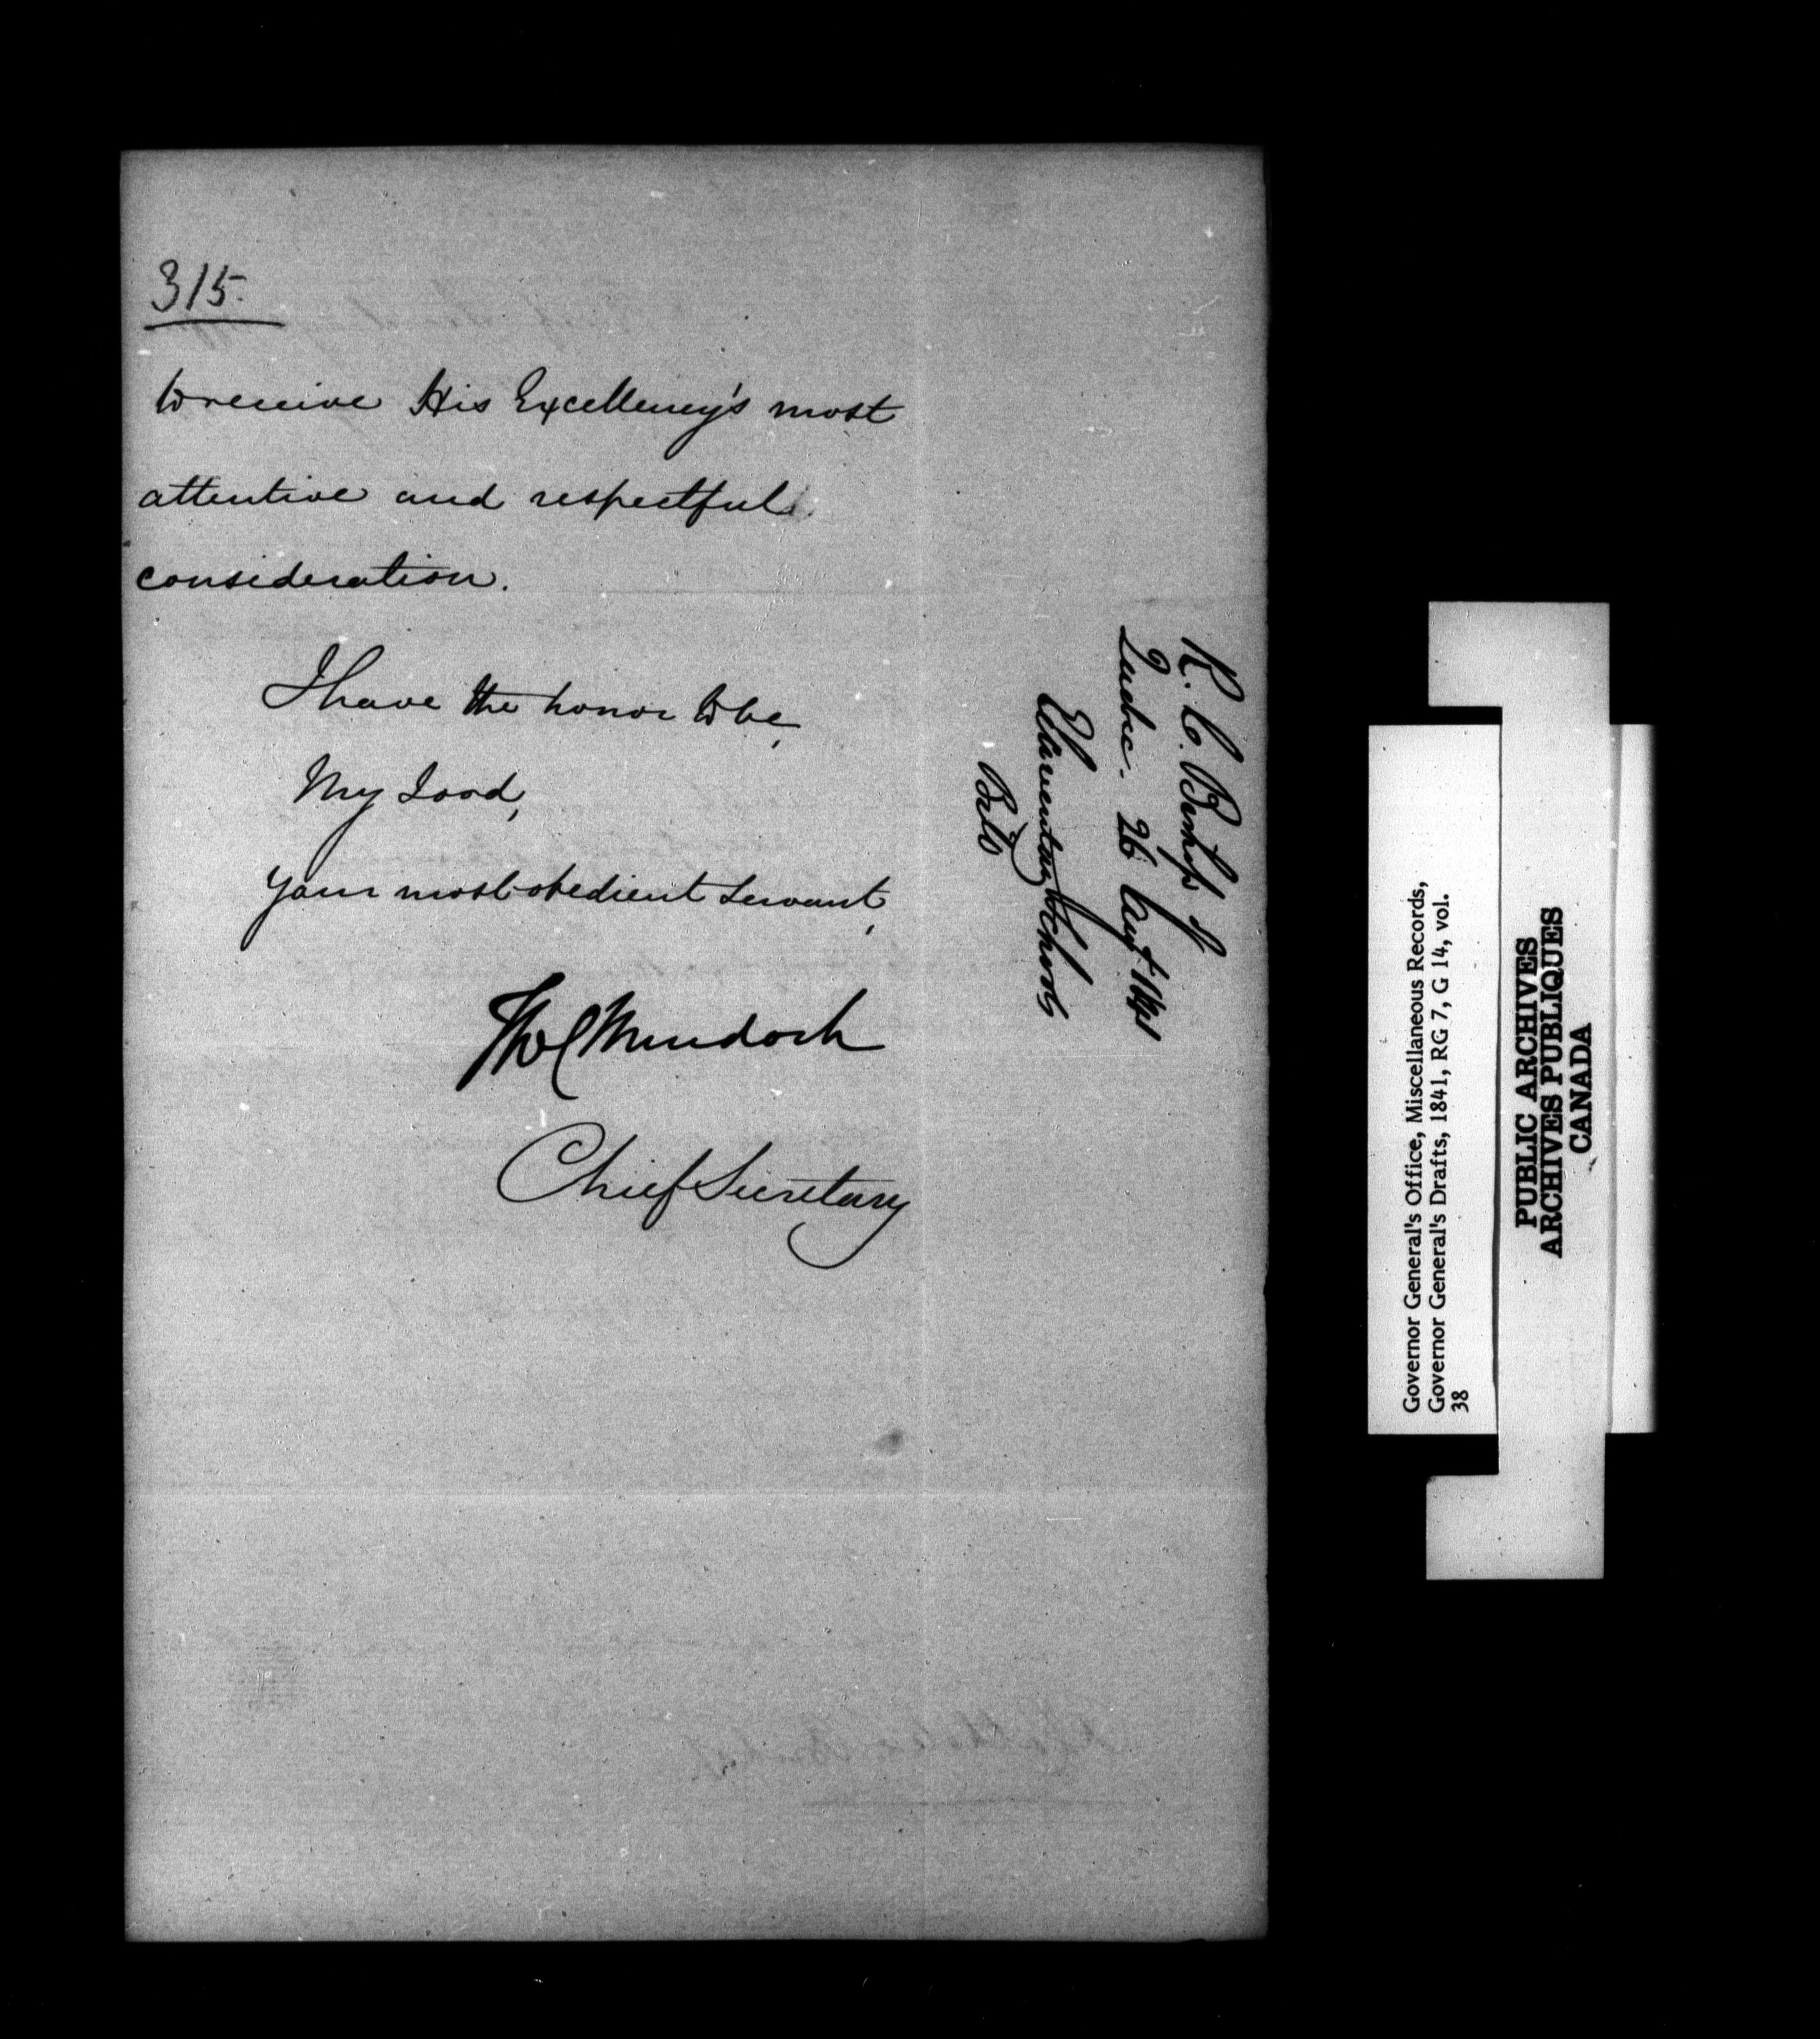 315.
to receive His Excellency's most
attentive and respectful
consideration.
I have the honor to be,
My Lord,
Your most obedient Servant,
ThoC Murdoch
Chief Secretary
R. C. Bishop of
Quebec. 26 Augt 1841
Elementary Schools
Bill
Governor General's Office, Miscellaneous Records,
Governor General's Drafts, 1841, RG 7, G 14, vol.
38
PUBLIC ARCHIVES
ARCHIVES PUBLIQUES
CANADA